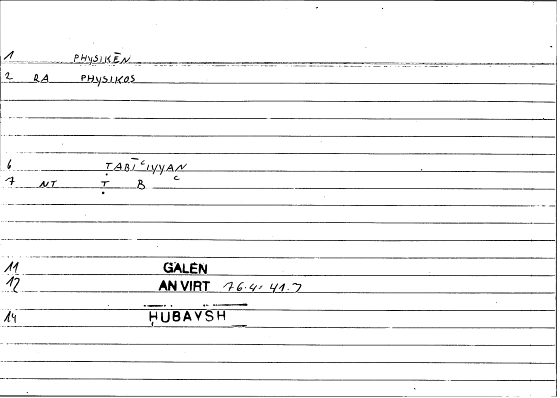 1 PHYSIKĒN
2 RA PHYSIKOS
6 ṬABĪʿIYYAN
7 NT Ṭ B ʿ
11 GALEN
12 AN VIRT 76.4, 41.7
14 ḤUBAYSH